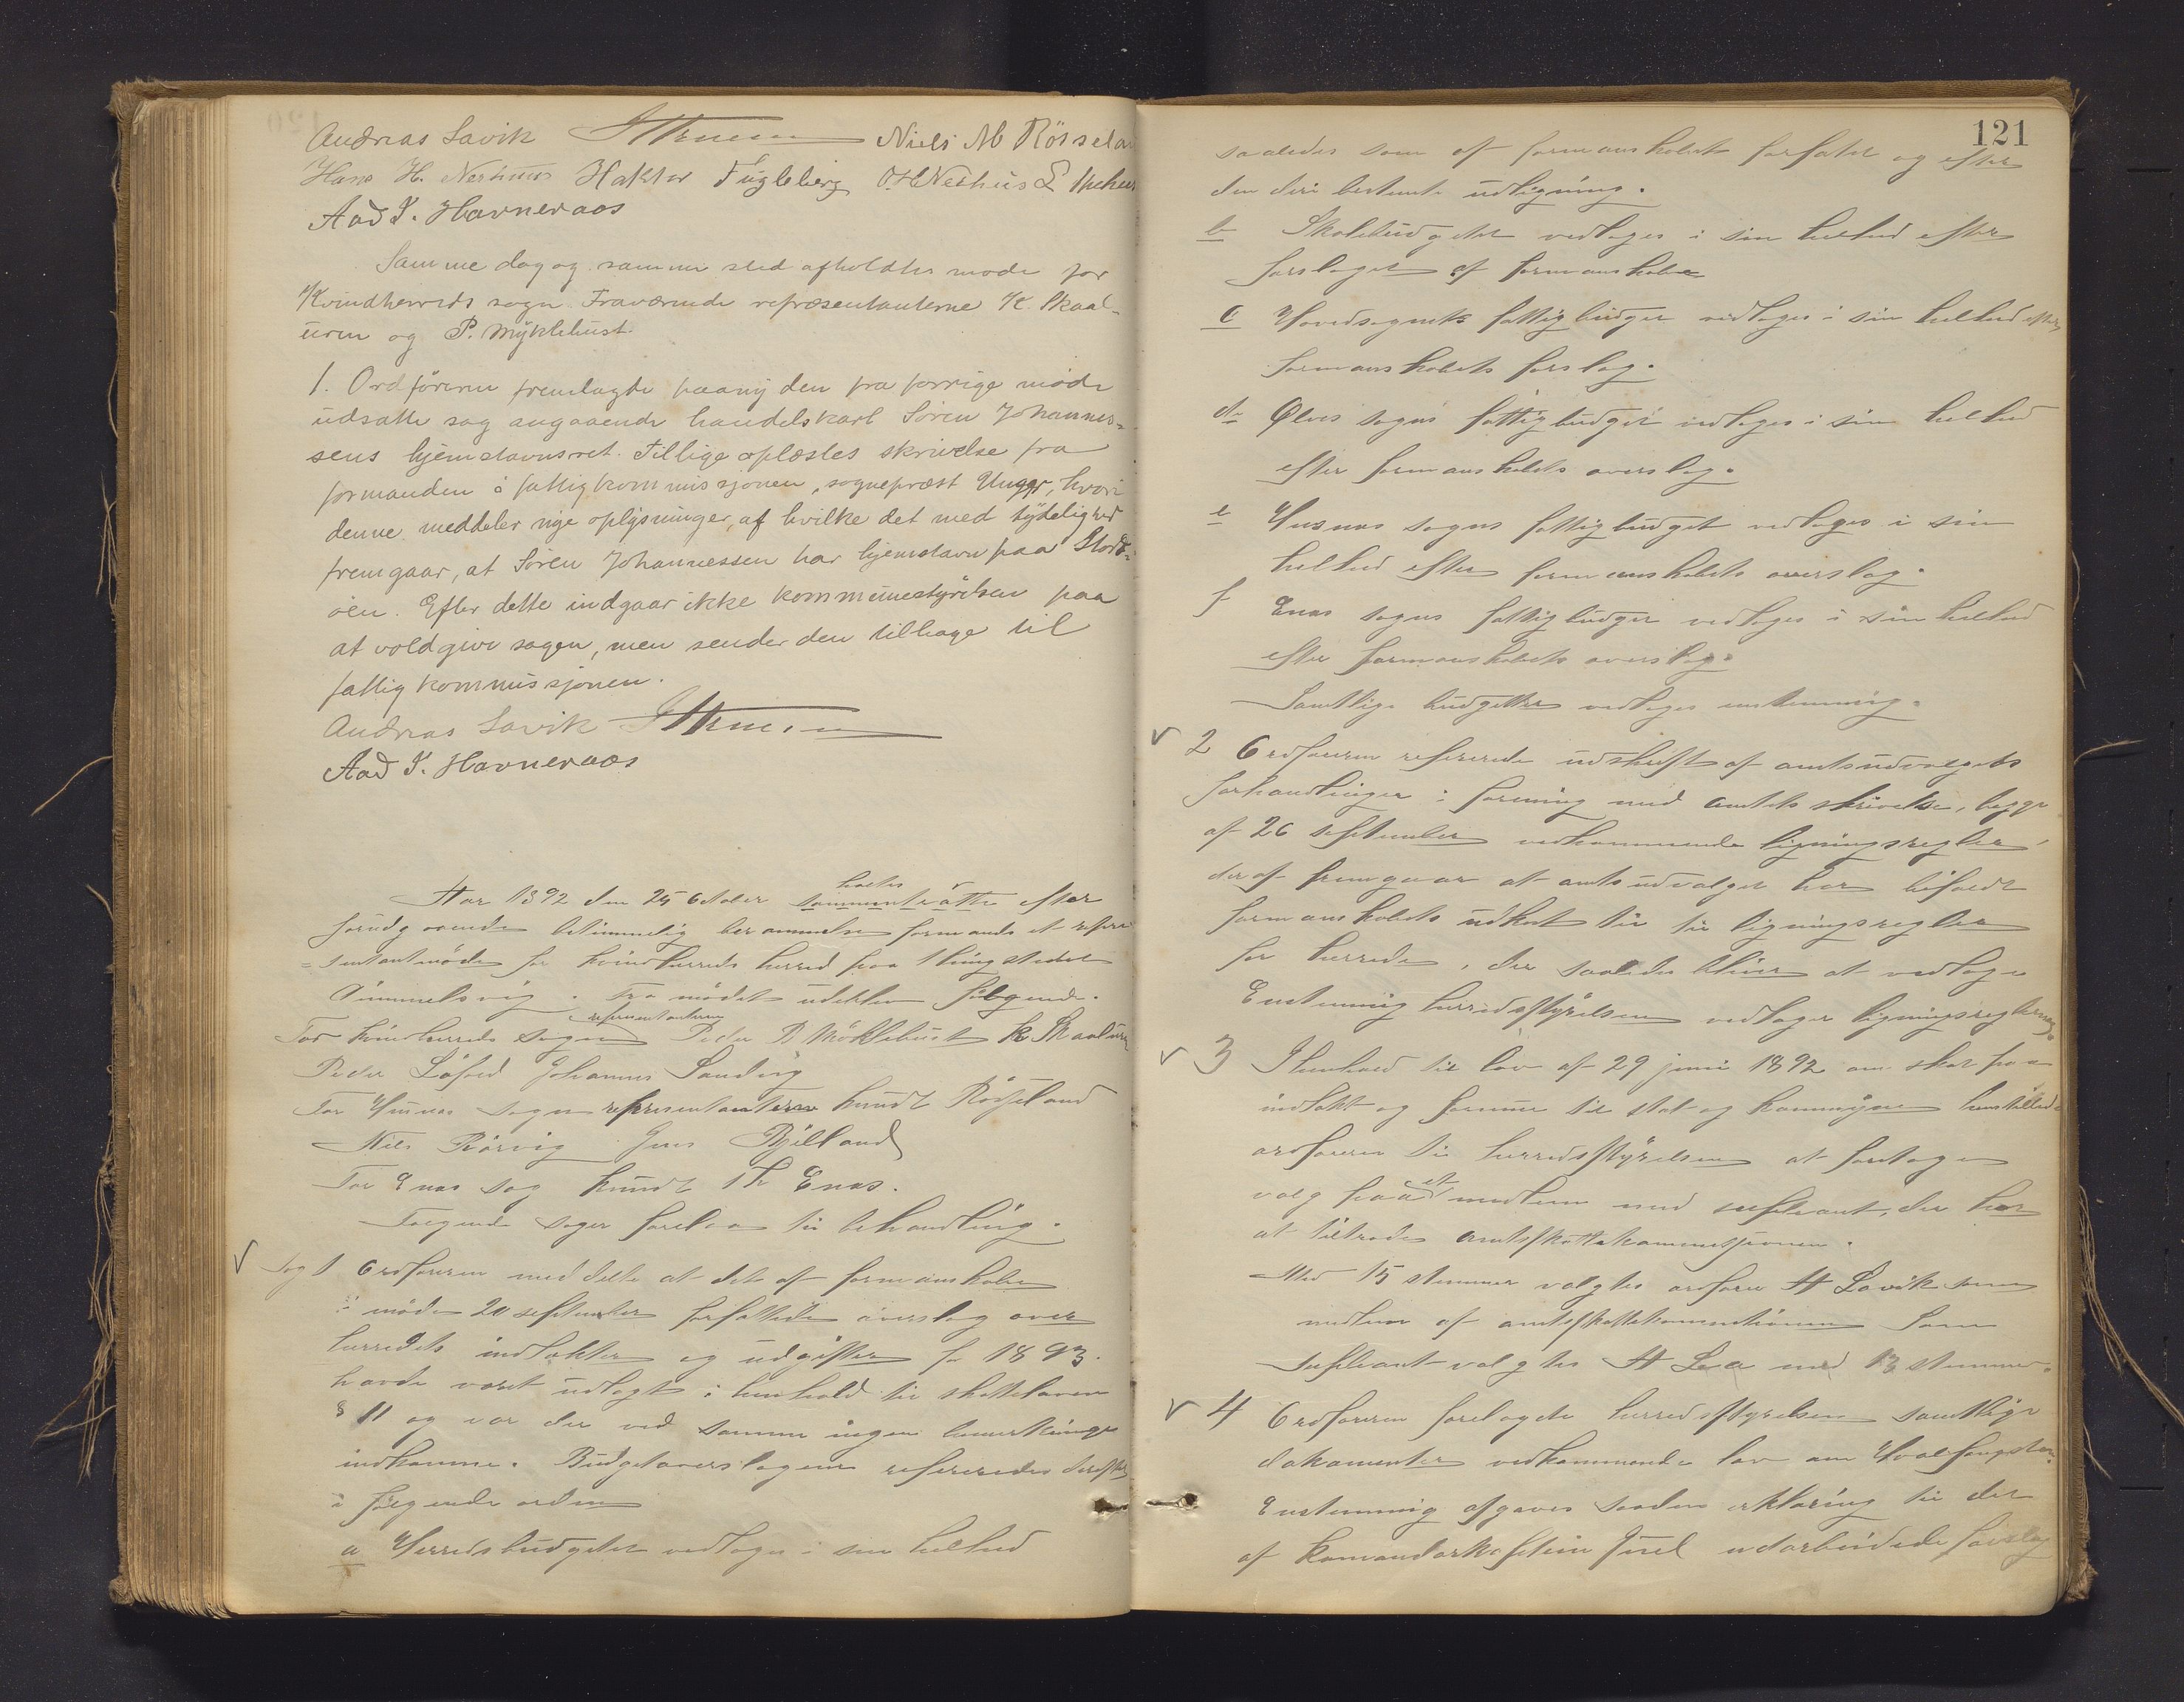 Andreas Savik Niels M Rösselan
Hans H. Neshuus Haktor Fugleberg O.H Neshus L
Aad I. Havneraas
Samme dag og samme sted afholdtes møde for
Kvindherreds sogn. Fraværende repræsentanterne K. Skaal-
uren og P. Myklebust.
1. Ordføreren fremlagde paany den fra forrige møde
udsatte sag angaaende handelskarl Søren Johannes-
sens hjemstavnsret. Tillige oplæstes skrivelse fra
formanden i fattigkommissjonen, sogneprest Unger, hvori
denne meddeler nye oplysninger, af hvilke det med tydelighed
fremgaar, at Søren Johannessen har hjemstavn paa Stord-
øen. Efter dette indgaar ikke kommunestyrelsen paa
at voldgive sagen, men sender den tilbage til
fattigkommissjonen.
Andreas Savik
Aad I. Havneraas
Aar 1892 den 25 October holdtes sammentrætte efter
forudgaaende betimmelig berammelse formands et repræ
-sentantmøde for Kvindherreds herred paa thingstedet
Gimmelsvig. Fra mødet udeblev følgende.
For Kvindherreds Sogn representanterne Peder P Möklebust K Skaaluren
Peder Löfald Johannes Sandvig
For Husnes Sogn representanterne Knudt Rösseland
Nils Rörvig Jens Bjelland
For Enes Sog Knudt Th Enes.
Følgende sager forelaa til behandling.
Sag 1 Ordføreren meddelte at det af formanskabet
i møde 20 september forfattede overslag over
herredets indtækter og udgifter for 1893.
havde været udlagt i henhold til skatteloven
§ 11 og var der ved samme ingen bemerkninger
indkomne. Budgetoverslagene refereredes derefter
i følgende orden
a Herredsbudgetet vedtages i sin helhed
121
saaledes som af formanskabet forfatet og efter
den deri bestemte udligning.
b Skolebudgetet vedtages i sin helhed efter
forslaget af formanskabet
c Hovedsognets fattigbudget vedtages i sin helhed efter
formanskabets forslag.
d Ølves sogns fattigbudget vedtages i sin helhed
efter formanskabets overslag.
e Husnes sogns fattigbudget vedtages i sin
helhed efter formanskabets overslag.
f Enes sogns fattigbudget vedtages i sin helhed
efter formanskabets overslag.
Samtlige budgetter vedtages enstemmig.
2 Ordføreren refererede udskrift af amtsudvalgets
forhandlinger i forening med amtets skrivelse, begge
af 26 september vedkommende ligningsregler,
deraf fremgaar at amtsudvalget har bifaldt
formanskabets udkast til til ligningsregler
for herredet, der saaledes bliver at vedtage
Enstemmig herredsstyrelsen vedtager ligningsreglerne.
3 I henhold til lov af 29 juni 1892 om skat paa
indtækt og formue til stat og kommune henstillede
ordføreren til herredsstyrelsen at foretage
valg paa et medlem med suppleant, der har
at tiltræde amtsskattekommissionen.
Med 15 stemmer valgtes ordfører A Savik som
medlem af amtsskattekommissionen Som
Supleant valgtes A Lea med 13 stemmer.
4 Ordføreren forelagde herredsstyrelsen samtlige
dokumenter vedkommende lov om Hvalfangsten.
Enstemmig afgaves saadan erklæring til det
af komandørkaptein Juel udarbeidede forslag